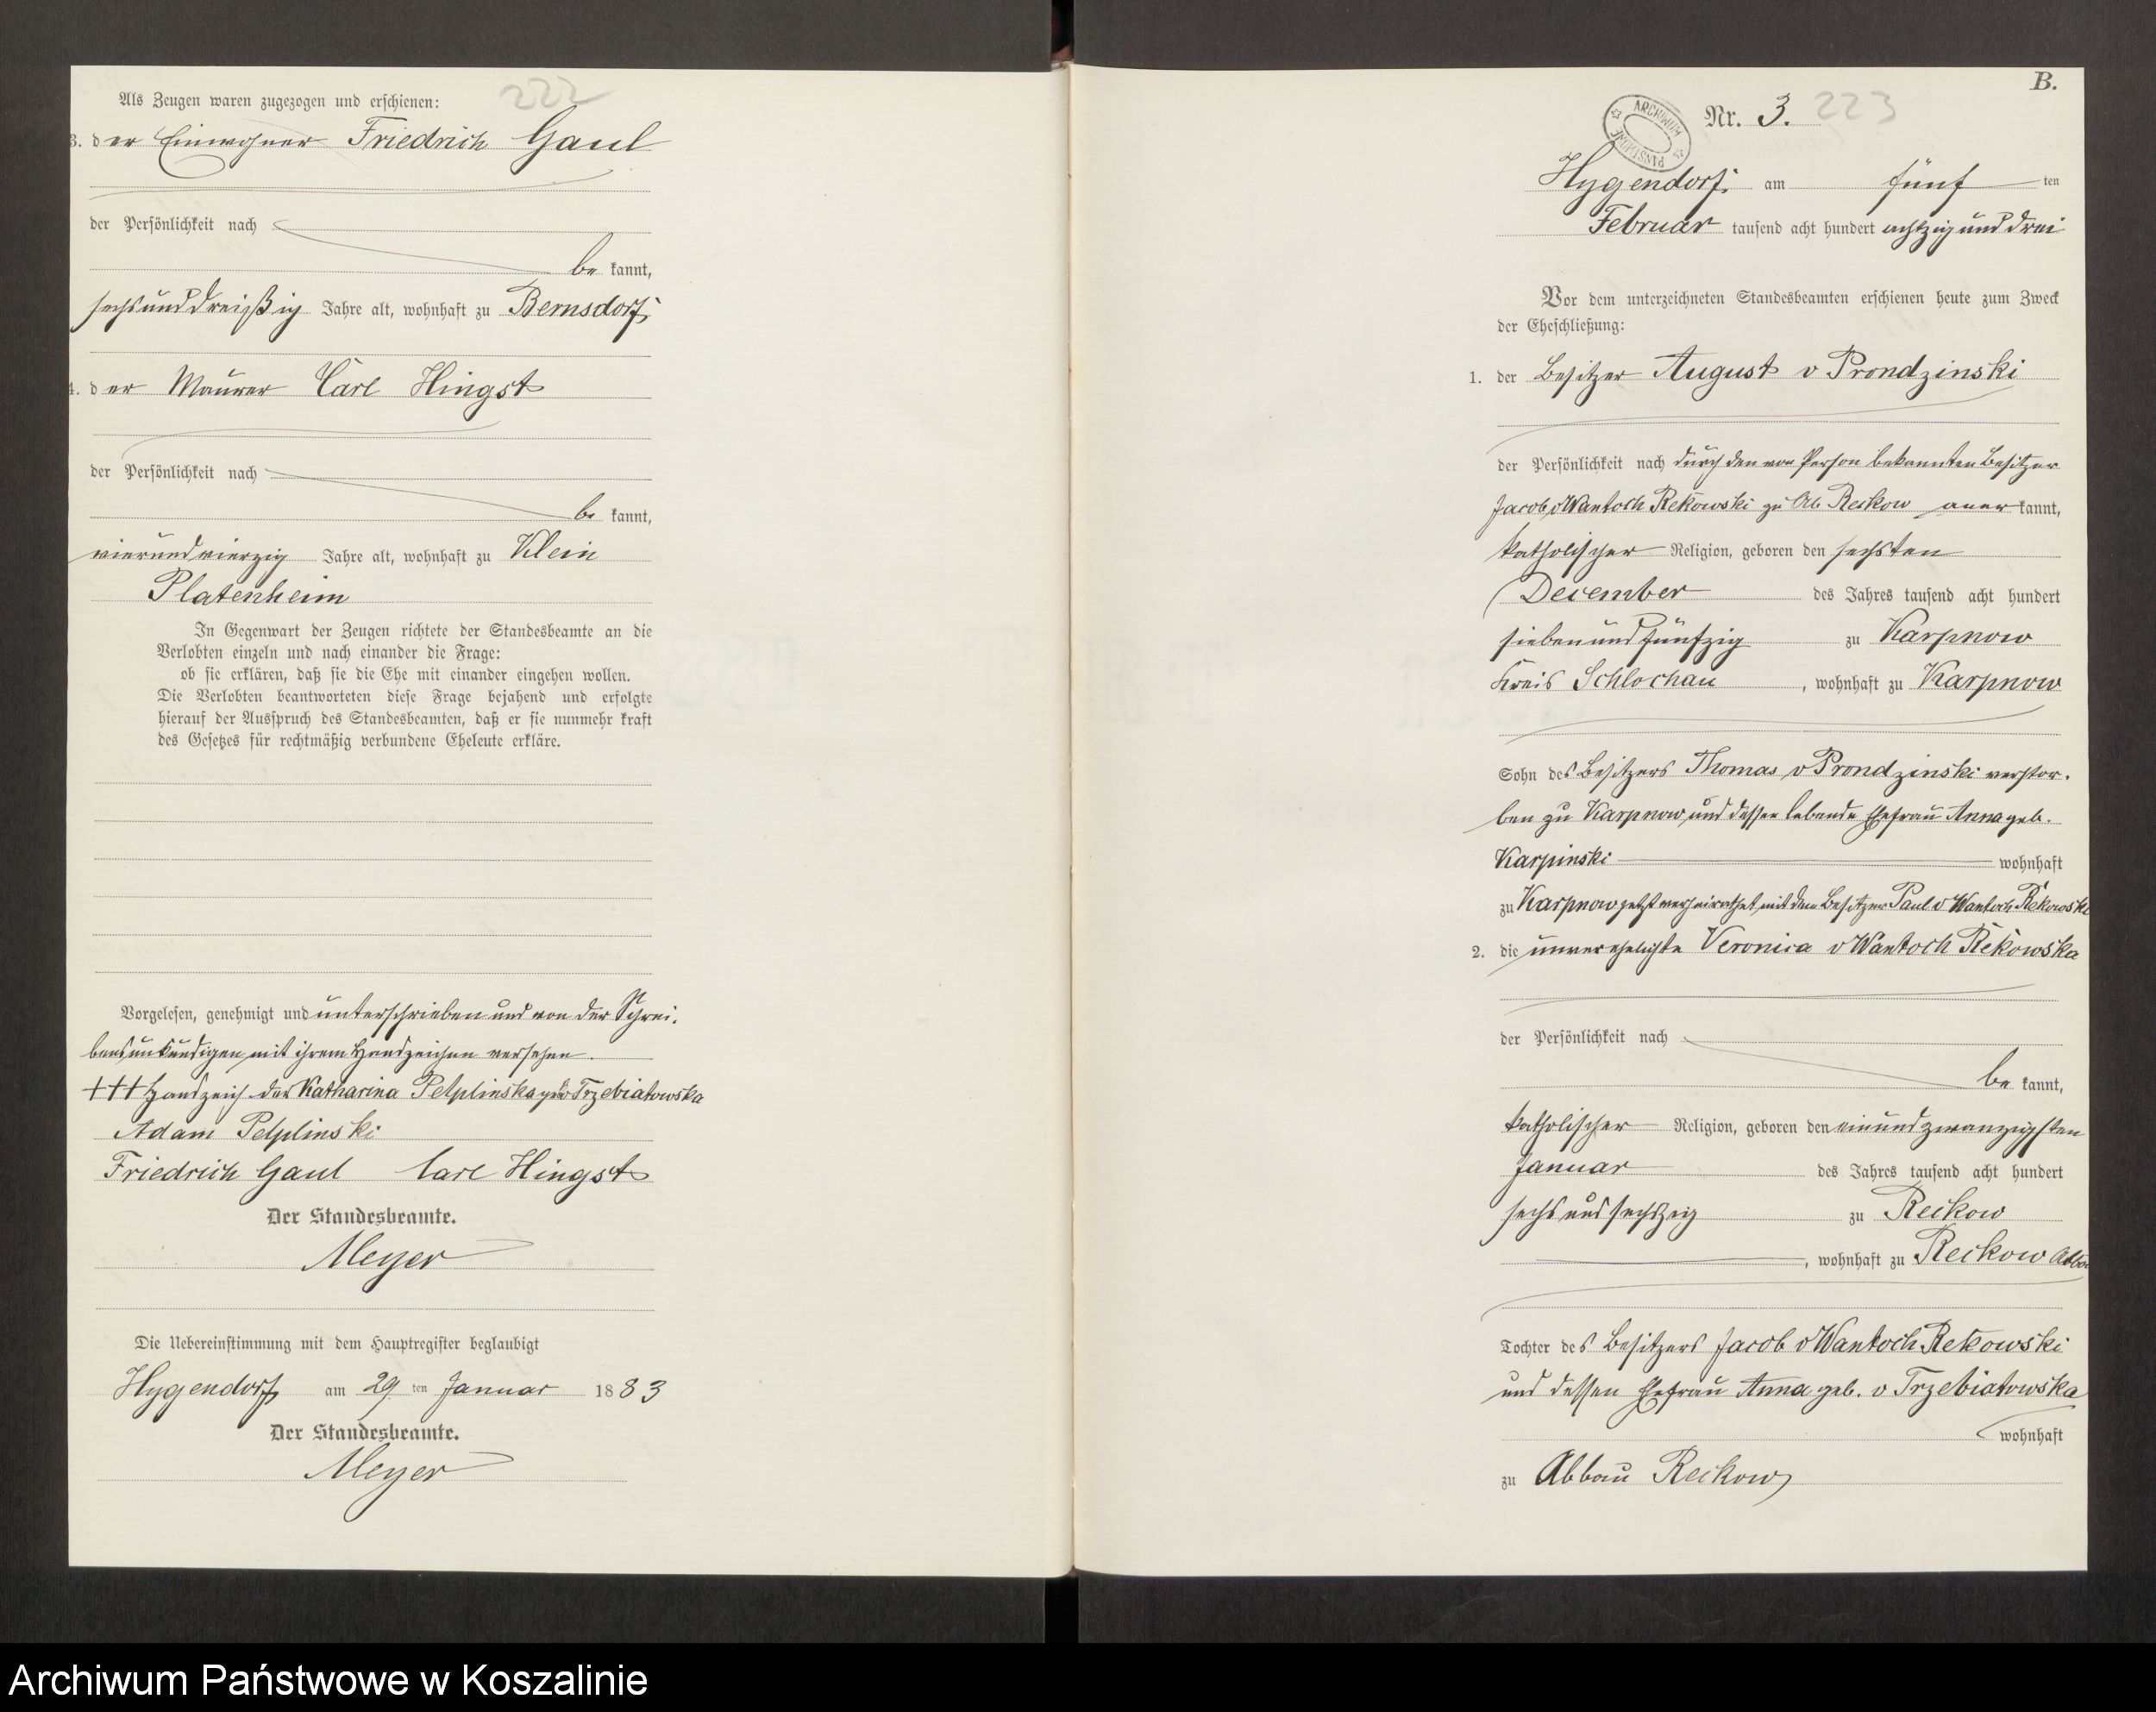 222
Als Zeugen waren zugezogen und erschienen:
3. der Einwohner Friedrich Gaul
der Persönlichkeit nach
be kannt,
sechsunddreißig Jahre alt, wohnhaft zu Bernsdorf
4. der Maurer Carl Hingst
der Persönlichkeit nach
be kannt,
vierundvierzig Jahre alt, wohnhaft zu Klein
Platenheim
In Gegenwart der Zeugen richtete der Standesbeamte an die
Verlobten einzeln und nach einander die Frage:
ob sie erklären, daß sie die Ehe mit einander eingehen wollen.
Die Verlobten beantworteten diese Frage bejahend und erfolgte
hierauf der Ausspruch des Standesbeamten, daß er sie nunmehr kraft
des Gesetzes für rechtmäßig verbundene Eheleute erkläre.
Vorgelesen, genehmigt und unterschrieben und von der Schrei-
bensunkundigen mit ihrem Handzeichen versehen.
+++ Handzeich. der Katharina Pelplinska geb v Trzebiatowska
Adam Pelplinski
Friedrich Gaul Carl Hingst
Der Standesbeamte.
Meyer
Die Uebereinstimmung mit dem Hauptregister beglaubigt
Hygendorf am 29 ten Januar 1883
Der Standesbeamte.
Meyer
B.
ARCHIWUM PAŃSTWOWE
Nr. 3. 223
Hygendorf am fünf ten
Februar tausend acht hundert achtzig und drei
Vor dem unterzeichneten Standesbeamten erschienen heute zum Zweck
der Eheschließung:
1. der Besitzer August v Prondzinski
der Persönlichkeit nach durch den von Person bekannten Besitzer
Jacob v Wantoch Rekowski zu Ab. Reckow aner kannt,
katholischer Religion, geboren den sechsten
December des Jahres tausend acht hundert
sieben und fünfzig zu Karpnow
Kreis Schlochau, wohnhaft zu Karpnow
Sohn des Besitzers Thomas v Prondzinski verstor-
ben zu Karpnow, und dessen lebende Ehefrau Anna geb.
Karpinski wohnhaft
zu Karpnow jetzt verheirathet mit dem Besitzer Paul v Wantoch Rekowski
2. die unverehelichte Veronica v Wantoch Rekowska
der Persönlichkeit nach
be kannt,
katholischer Religion, geboren den einundzwanzigsten
Januar des Jahres tausend acht hundert
sechs und sechszig zu Reckow
, wohnhaft zu Reckow Abbau
Tochter des Besitzers Jacob v Wantoch Rekowski
und dessen Ehefrau Anna geb. v Trzebiatowska
wohnhaft
zu Abbau Reckow
Archiwum Państwowe w Koszalinie